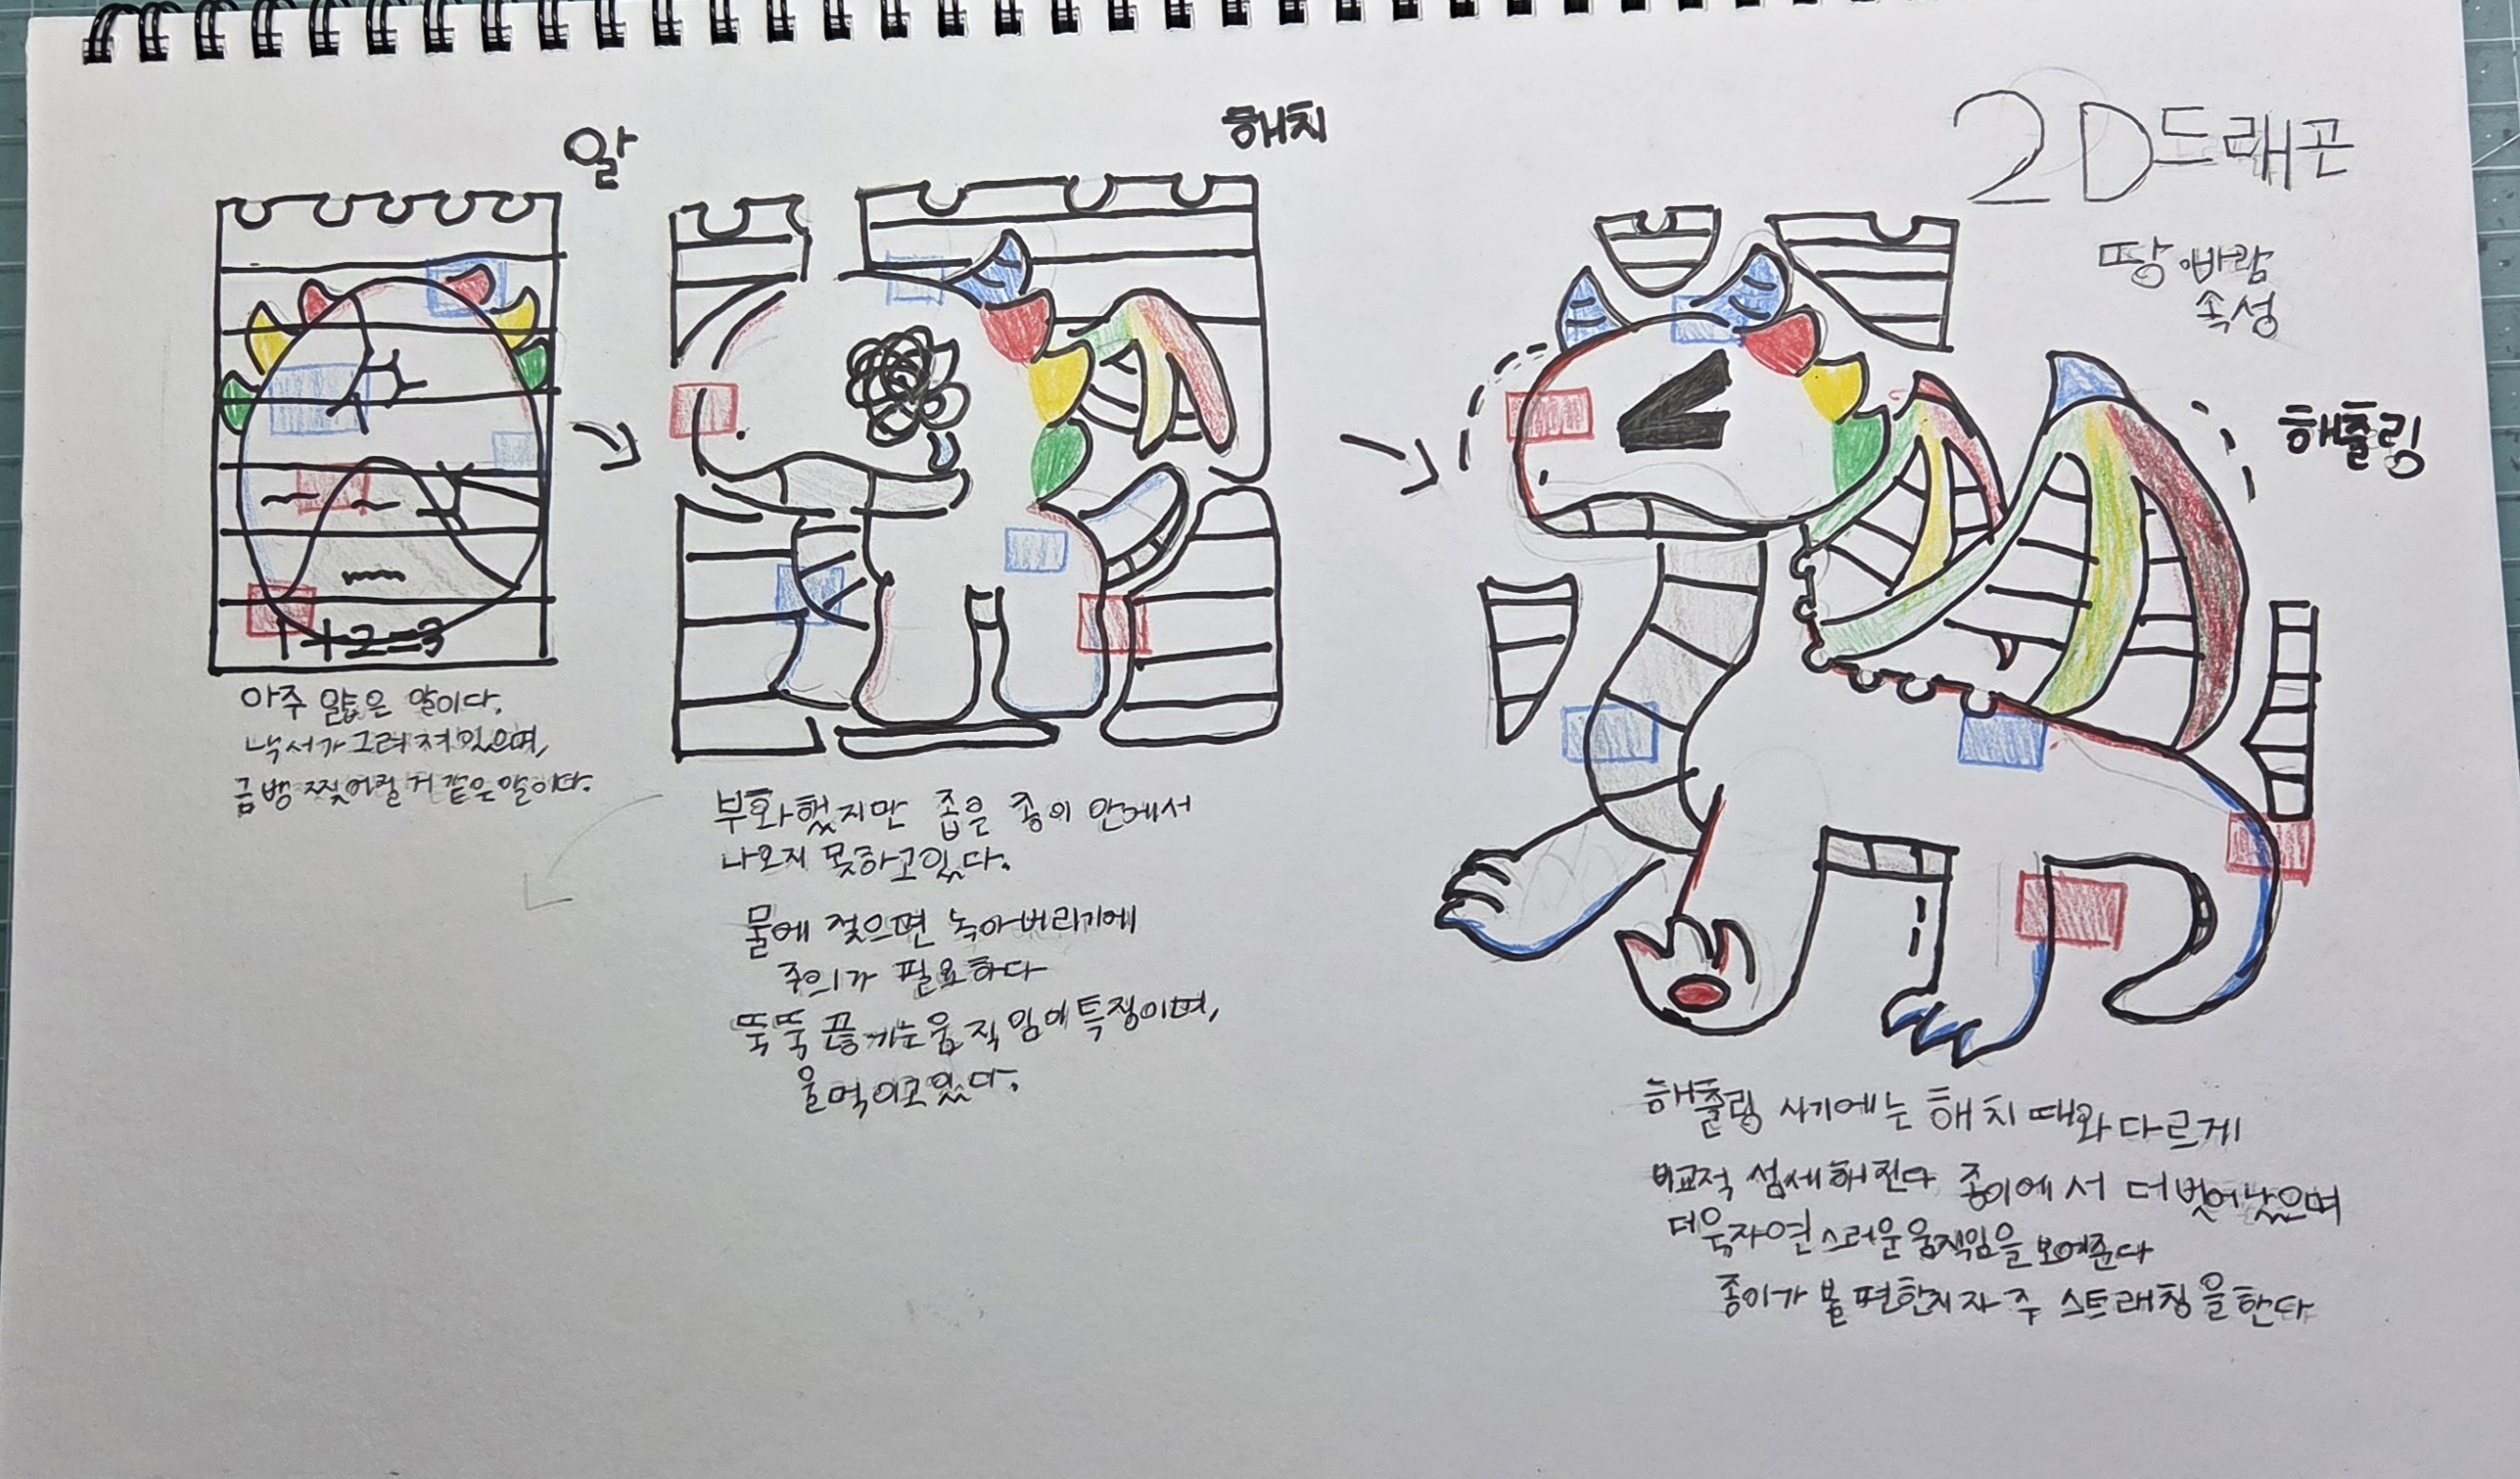 2D드래곤
땅 바람
속성
알
1+2=3
아주 얇은 알이다.
낙서가 그려져있으며,
금방 찢어질거 같은 알이다.
해치
부화했지만 좁은 종이 안에서
나오지 못하고있다.
물에 젖으면 녹아버리기에
주의가 필요하다
뚝뚝 끊기는움직임이특징이며,
울먹이고있다.
해츨링
해츨링 시기에는 해치 때와 다르게
비교적 섬세해진다 종이에서 더 벗어났으며
더욱자연스러운움직임을 보여준다
종이가 불편한지자주 스트레칭을한다